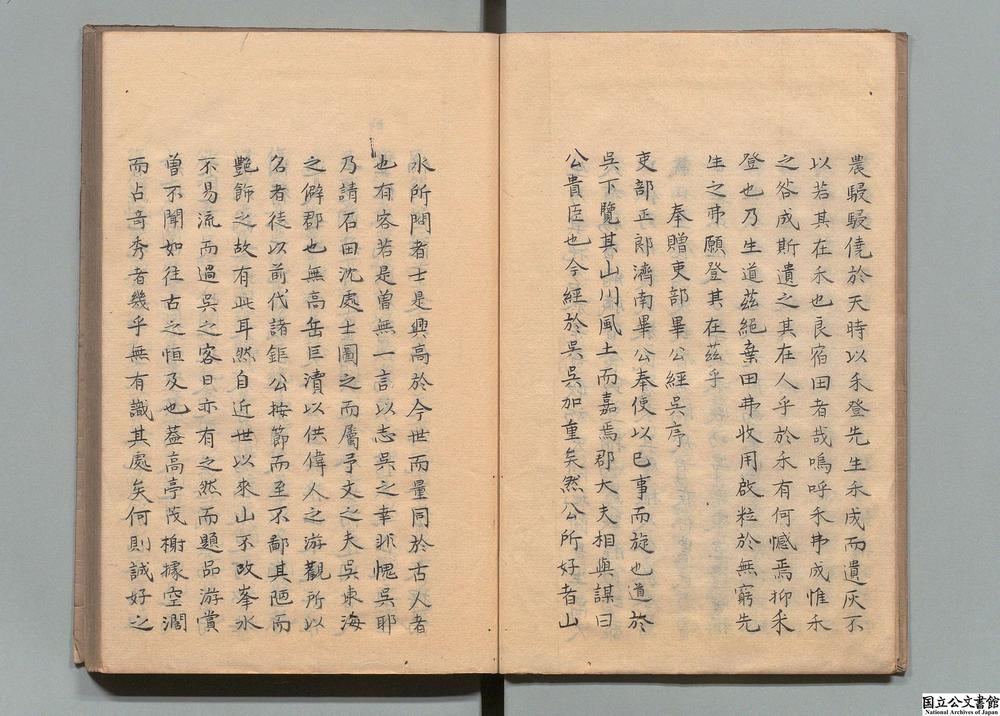 農駸駸僥於天時以禾登先生禾成而遺灰不
以若其在禾也良宿田者哉嗚呼禾弗成惟禾
之咎成斯遺之其在人乎於禾有何憾焉抑禾
登也乃生道茲絕棄田弗收用啟粒於無窮先
生之弗願登其在茲乎
奉贈吏部畢公經吳序
吏部正郎濟南畢公奉使以巳事而旋也道於
吳下覽其山川風土而嘉焉郡大夫相與謀曰
公貴臣也今經於吳吳加重矣然公所好者山
水所問者士是興高於今世而量同於古人者
也有客若是曾無一言以志吳之幸非愧吳耶
乃請石田沈處士圖之而屬予文之夫吳東海
之僻郡也無高岳巨瀆以供偉人之游觀所以
名者徒以前代諸鉅公按節而至不鄙其陋而
艷飾之故有此耳然自近世以來山不改峯水
不易流而過吳之客日亦有之然而題品游賞
曾不聞如往古之恒及也葢高亭茂榭據空濶
而占竒秀者幾乎無有識其處矣何則誠好之
国立公文書館
National Archives of Japan